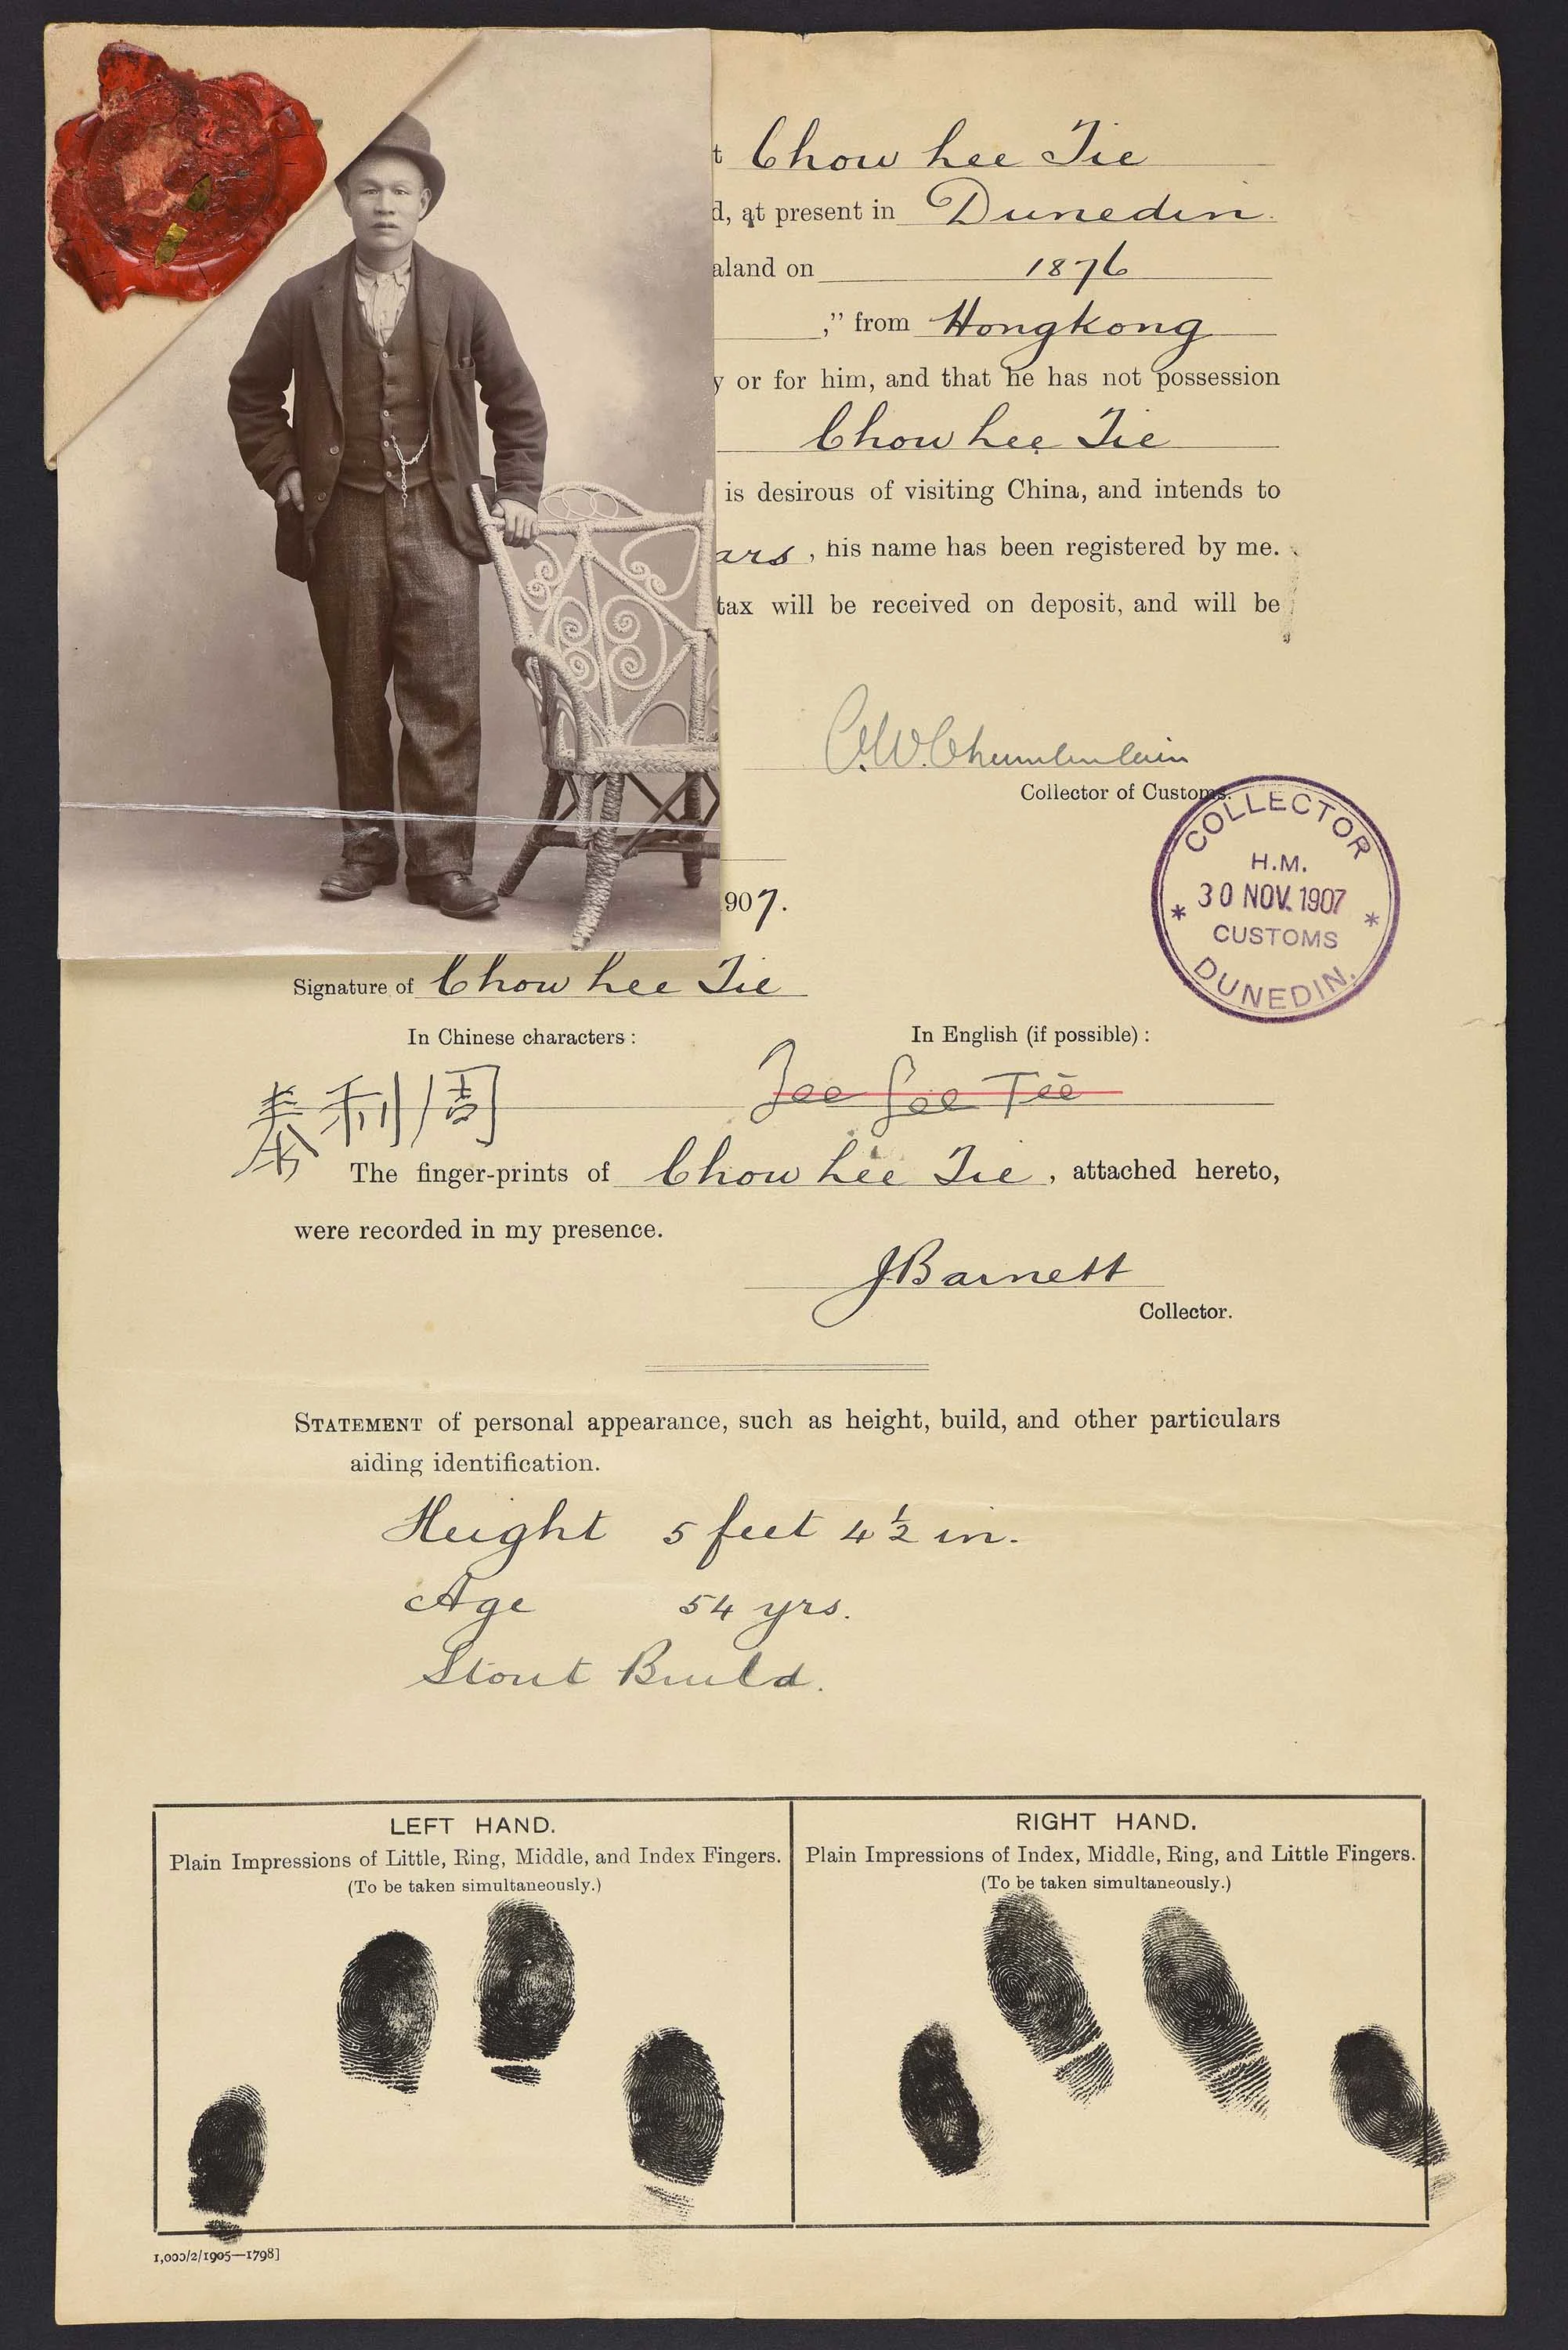 t Chow Lee Tie
d, at present in Dunedin.
aland on 1876
," from Hongkong
y or for him, and that he has not possession
Chow Lee Tie
is desirous of visiting China, and intends to
ars, his name has been registered by me.
tax will be received on deposit, and will be
C.W. Chamberlain
Collector of Customs.
COLLECTOR
H.M.
30 NOV. 1907
CUSTOMS
DUNEDIN.
907.
Signature of Chow Lee Tie
In Chinese characters: In English (if possible):
周利泰 Jee Lee Tee
The finger-prints of Chow Lee Tie, attached hereto,
were recorded in my presence.
J Barnett
Collector.
STATEMENT of personal appearance, such as height, build, and other particulars
aiding identification.
Height 5 feet 4 ½ in.
Age 54 yrs.
Stout Build.
LEFT HAND.
Plain Impressions of Little, Ring, Middle, and Index Fingers.
(To be taken simultaneously.)
RIGHT HAND.
Plain Impressions of Index, Middle, Ring, and Little Fingers.
(To be taken simultaneously.)
1,000/2/1905—1798]